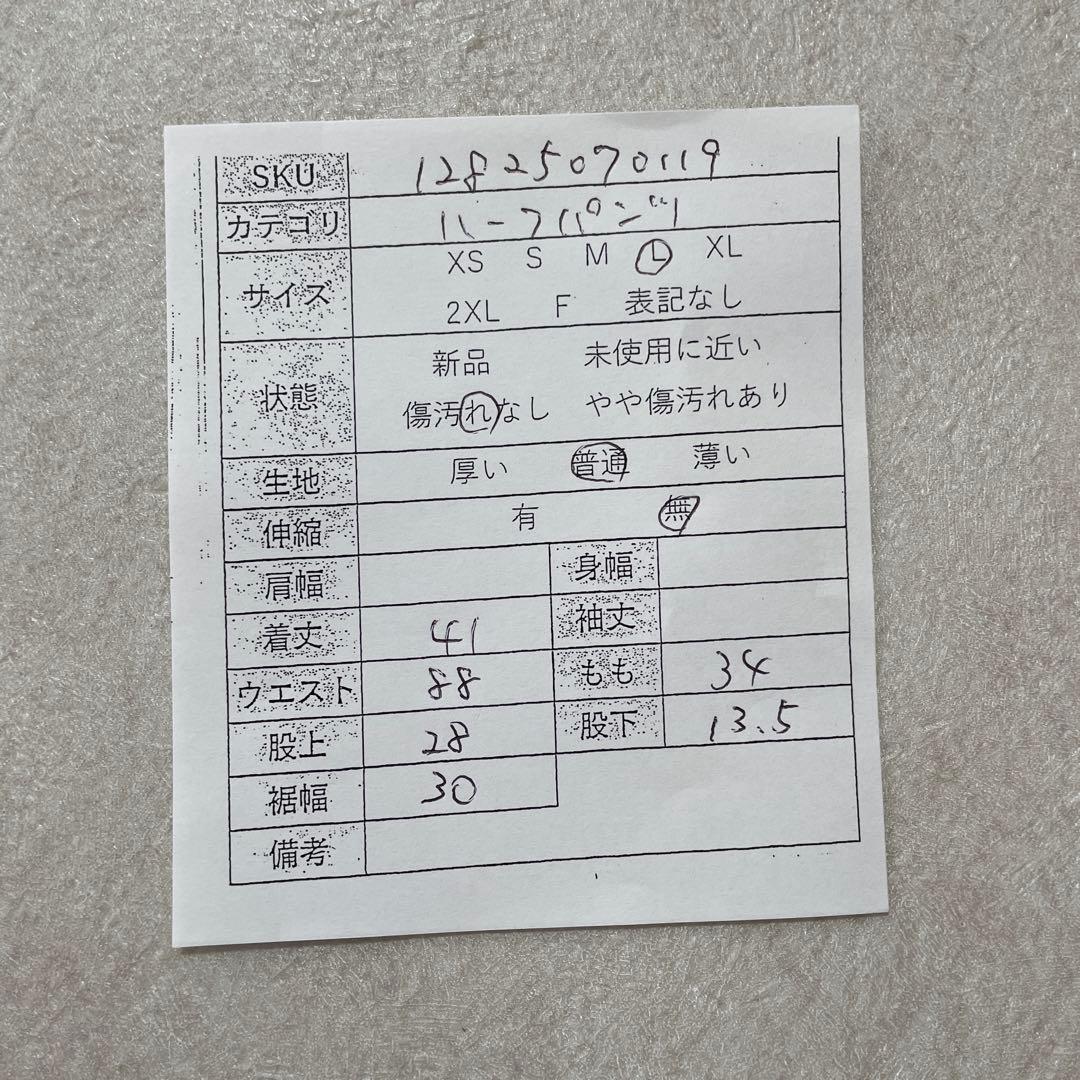 SKU 12825070119
カテゴリ ハーフパンツ
サイズ XS S M L XL
2XL F 表記なし
状態 新品 未使用に近い
傷汚れなし やや傷汚れあり
生地 厚い 普通 薄い
伸縮 有 無
肩幅 身幅
着丈 41 袖丈
ウエスト 88 もも 34
股上 28 股下 13.5
裾幅 30
備考